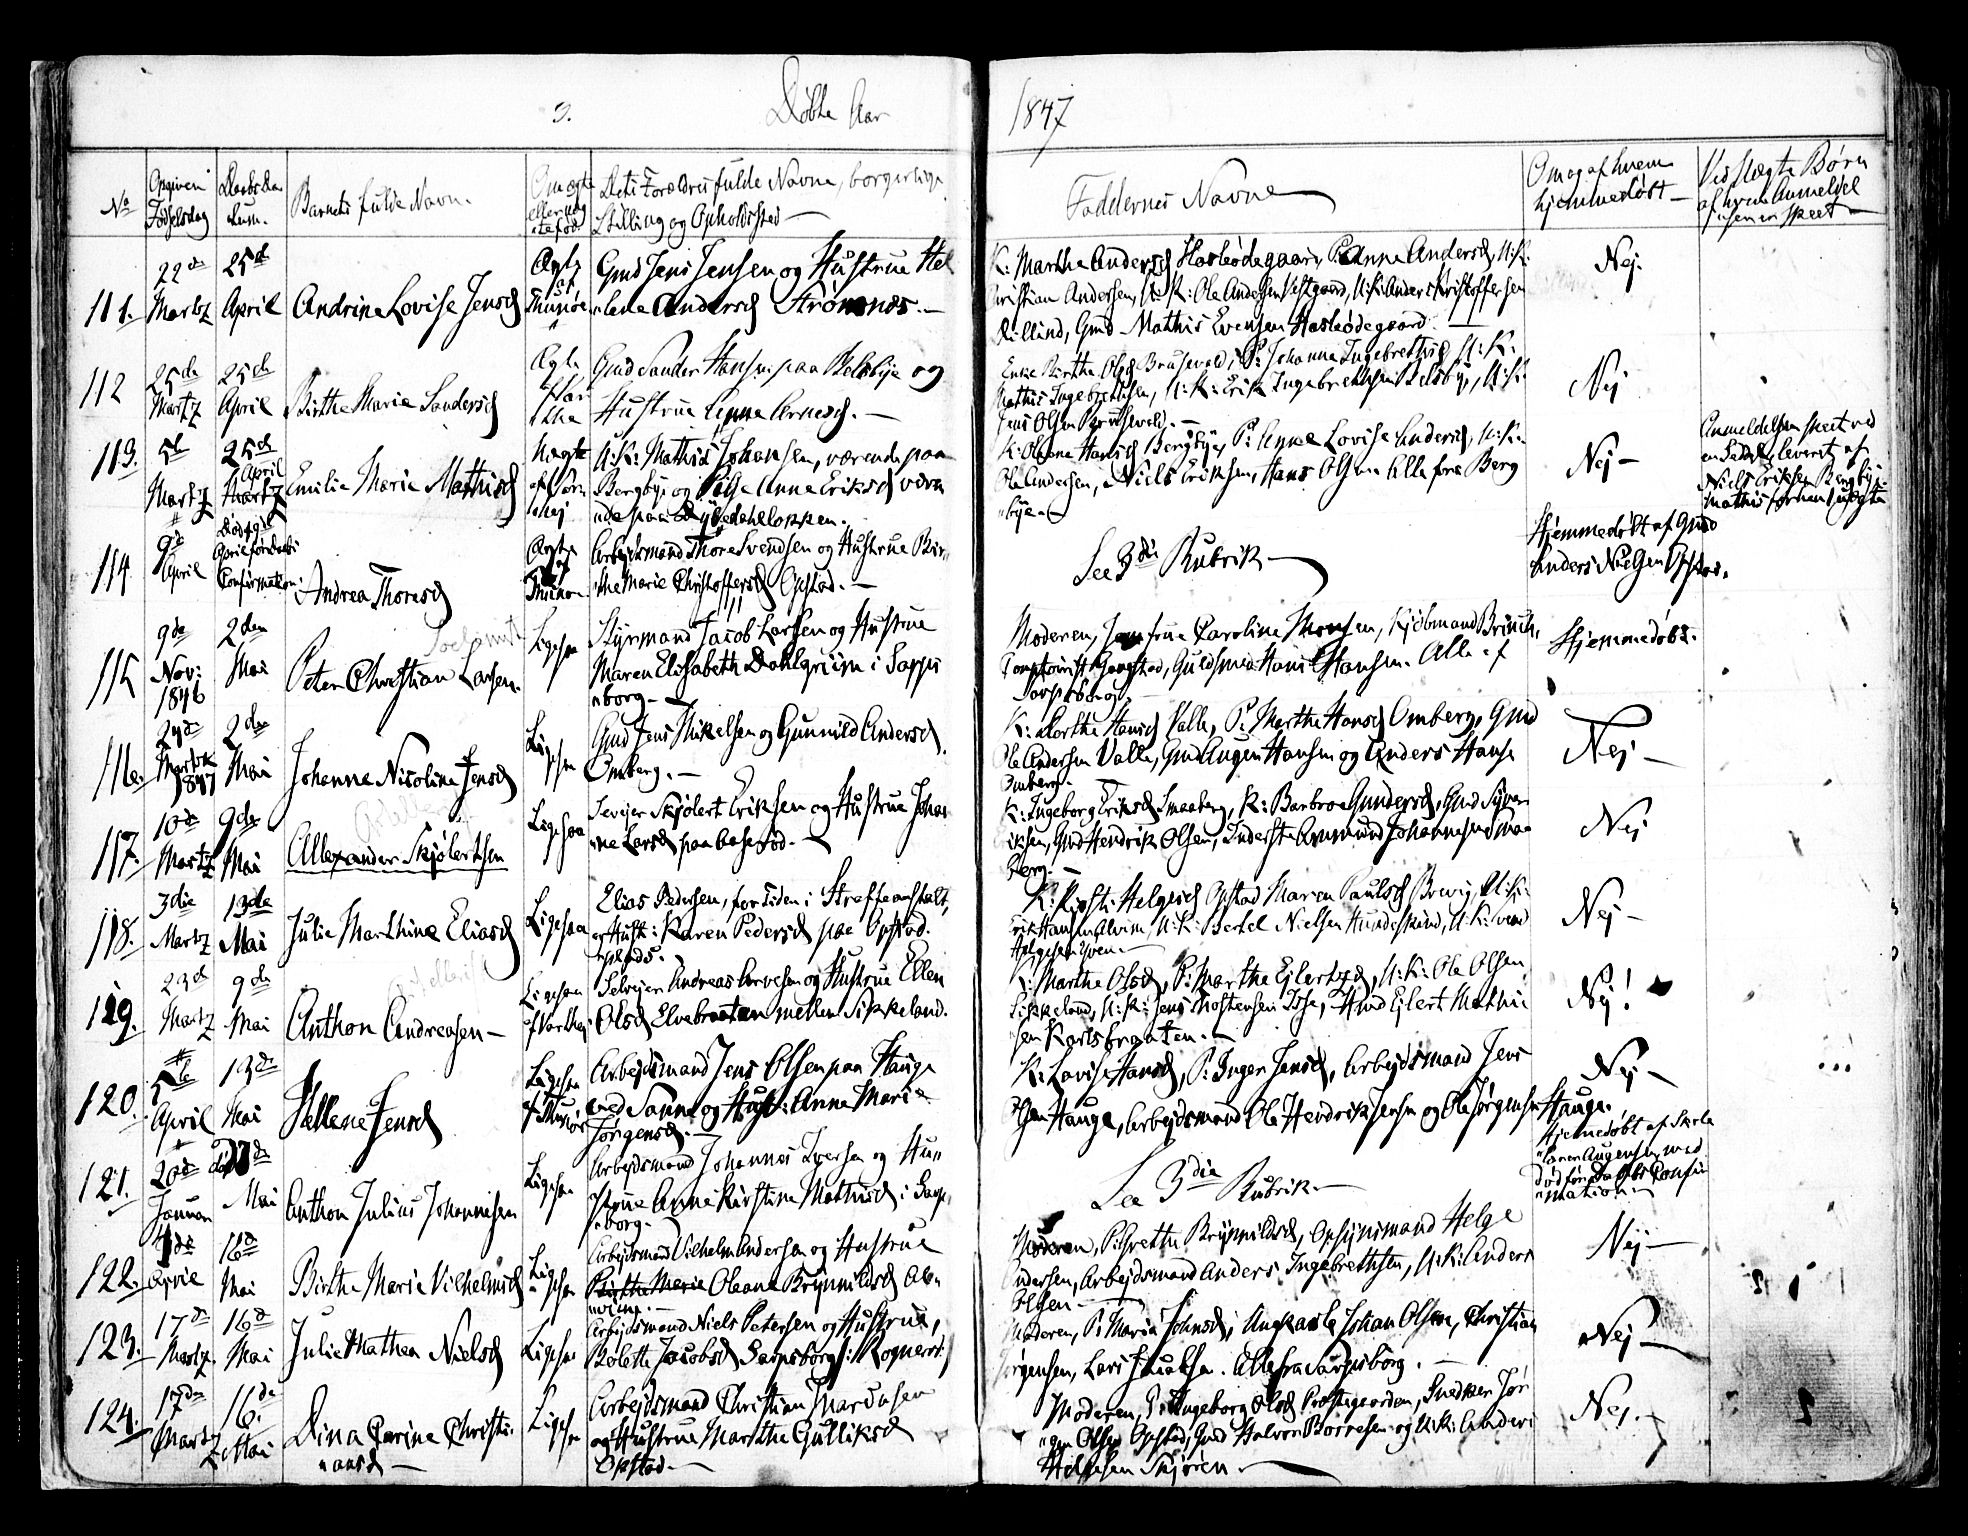 3. Døbte Aar 1847
No
Opgiven Fødselsdag
Daabsda tum.
Barnets fulde Navn.
Om ægte eller uægte
Dets Forældres fulde Navne, borgerlige
Stilling og Opholdssted
Faddernes Navne
Om og af hvem
hjemmedøbt
Ved uægte Børn
af hvem Anmeldel
sen er skeet
111. 22de Martz 25de April Andrine Lovise Jensd Ægte
Gmd Jens Jensen og Hustrue Hel
lene Andersd Strømnæs.
K: Marthe Andersd Hasleødegaard, P: Anne Andersd, U:K:
Christian Andersen, U:K: Ole Andersen Vestgaard, U:K: Anders Kristoffersen
Gmd Mathis Evensen Hasleødegaard.
Nej.
112 25de Martz 25de April Birthe Marie Sandersd Ægte
Gmd Sander Hansen paa Belsbye og
Hustrue Anne Arnesd.
Enke Birthe Olsd Brusevold, P: Johanne Ingebretsd, U:K:
Mathis Ingebretsen, U:K: Erik Ingebretsen Belsbye, U:K:
Jens Olsen Brusevold.
Nej
113. 5te Martz 25de April Martz Emilie Marie Mathisd Uægte
U:K: Mathis Johansen, værende paa
Bergbye og Pige Anne Eriksd være
nde paa Dybedahlløkken.
K: Oleane Hansd Bergbye, P: Anne Lovise Andersd, U:K:
Ole Andersen, Niels Eriksen, Hans Olsen alle fra Berg
bye.
Nej
Anmeldelsen skeet ved
en Seddel, leveret af
Niels Eriksen Bergbye
114 9de April Død 9de April før Daabs Confirmation Andrea Thoresd Ægte
Arbejdsmand Thore Svendsen og Hustrue Bir
the Marie Christoffersd Opstad.
See 3die Rubrik
Hjemmedøbt af Gmd
Anders Nielsen Opstad.
115 9de Nov: 1846 2den Mai Peter Christian Larsen. Ligesaa
Styrmand Jacob Larsen og Hustrue
Maren Elisabeth Dahlgriim i Sarps
borg.
Moderen, Jomfrue Caroline Monsen, Kjøbmand Brinch,
Guldsmed Hans Hansen. Alle af
Sarpsborg.
Hjemmedøbt.
116. Martz 1847 2den Mai Johanne Nicoline Jensd Ligesaa
Gmd Jens Mikelsen og Gunnild Andersd
Omberg.
K: Dorthe Hansd Valle, P: Marthe Hansd Omberg, Gmd
Ole Andersen Valle, Gmd Augen Hansen og Anders Hansen
Omberg.
Nej
117. 10de Martz 9de Mai Allexander Skjølertsen Ligesaa
Selvejer Skjølert Eriksen og Hustrue Johan
ne Larsd paa
K: Ingeborg Eriksd Smaaberg, K: Barbroe Gundersd, Gmd Syver
Eriksen, Gmd Hendrik Olsen, Inderste Ammund Johannesen Smaa
berg.
Nej
118. 3die Martz 13de Mai Julie Marthine Eliasd Ligesaa
Elias Pedersen, for Tiden i Straffeanstalt,
og Hust: Karen Pedersd paa Opstad.
plads.
K: Helgesd Opstad Maren Paulsd Brevig, U:K:
Erik Hansen Alvim, U:K: Bertel Nielsen Hundeskind, U:K:
Helgesen
Nej
119. 23de Martz 9de Mai Anthon Andreasen Ligesaa
Selvejer Andreas Arvesen og Hustrue Ellen
Olsd Elvebraaten mellem Sikkeland.
K: Marthe Olsd, P: Marthe Ejlertsd, U:K: Ole Olsen
Sikkeland, U:K: Jens Mostensen Isse, Gmd Ejlert Mathi
sen Karlsbraaten.
Nej!
120. 5te April 13de Mai Hellene Jensd Ligesaa
Arbejdsmand Jens Olsen paa Hauge
ved Sanne og Hust: Anne Marie
Jørgensd.
K: Lovise Hansd, P: Inger Jensd, Arbejdsmand Jens
Olsen Hauge, Arbejdsmand Ole Hendrik Jensen og Ole Jørgensen Hauge.
Nej
121. 20de Januar Mai Anthon Julius Johannesen Ligesaa
Arbejdsmand Johannes Iversen og Hu
strue Anne Kirstine Mathisd i Sarps
borg.
See 3die Rubrik.
Hjemmedøbt af
død før Daabs Confir
mation.
122. April 16de Mai Birthe Marie Vilhelmsd Ligesaa
Arbejdsmand Vilhelm Andersen og Hustrue
Birthe Marie Oleane Brynnildsd Al
Moderen, P: Grethe Brynnildsd, Opsynsmand Helge
Andersen, Arbejdsmand Anders Ingebrethsen, U:K: Anders
Olsen
Nej
123. 17de Martz. 16de Mai Julie Mathea Nielsd Ligesaa
Arbejdsmand Niels Petersen og Hustrue,
Bolette Jacobsd Sarpsborg
Moderen, P: Maria Johnsd, Ungkarle Johan Olsen, Christian
Jørgensen, Lars Jacobsen. Alle fra Sarpsborg.
Nej
124. 17de Martz 16de Mai Dina Carine Christi
ansd Ligesaa
Arbejdsmand Christian Mardusen
og Hustrue Marthe Gulliksd
Opstad.
Moderen, P: Ingeborg Olsd Præstegaarden, Snedker Jør
gen Olsen Opstad, Gmd Halvor Børresen og U:K: Anders
Helgesen Skjøren.
Nej.